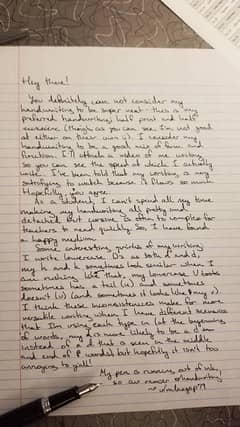 Hey there!
You definitely can not consider my
handwriting to be super neat - this is my
preferred handwriting, half print and half
cursive (though as you can see, I'm not good
at either on their own :)). I consider my
handwriting to be a good mix of form and
function. I'll attach a video of me writing
so you can see the speed at which I actually
write. I've been told that my writing is very
satisfying to watch because it flows so much.
Hopefully you agree.
As a student, I can't spend all my time
making my handwriting all pretty and
detached. But cursive is often to complex for
teachers to read quickly. So, I have found
a happy medium.
Some interesting quirks of my writing:
I write lowercase Ds as both d and
my h and k sometimes look similar when I
am rushing. Like that, my lowercase U looks
sometimes has a tail (u) and sometimes
doesn't (u) (and sometimes it looks like
I think these inconsistencies make for more
versatile writing when I have different scenarios
that I'm using each type in (at the beginning
of words, my d is more likely to be a
instead of a d that is seen in the middle
and end of words) but hopefully it isn't too
annoying to y'all!
My pen is running out of ink,
so au revoir r/handwriting